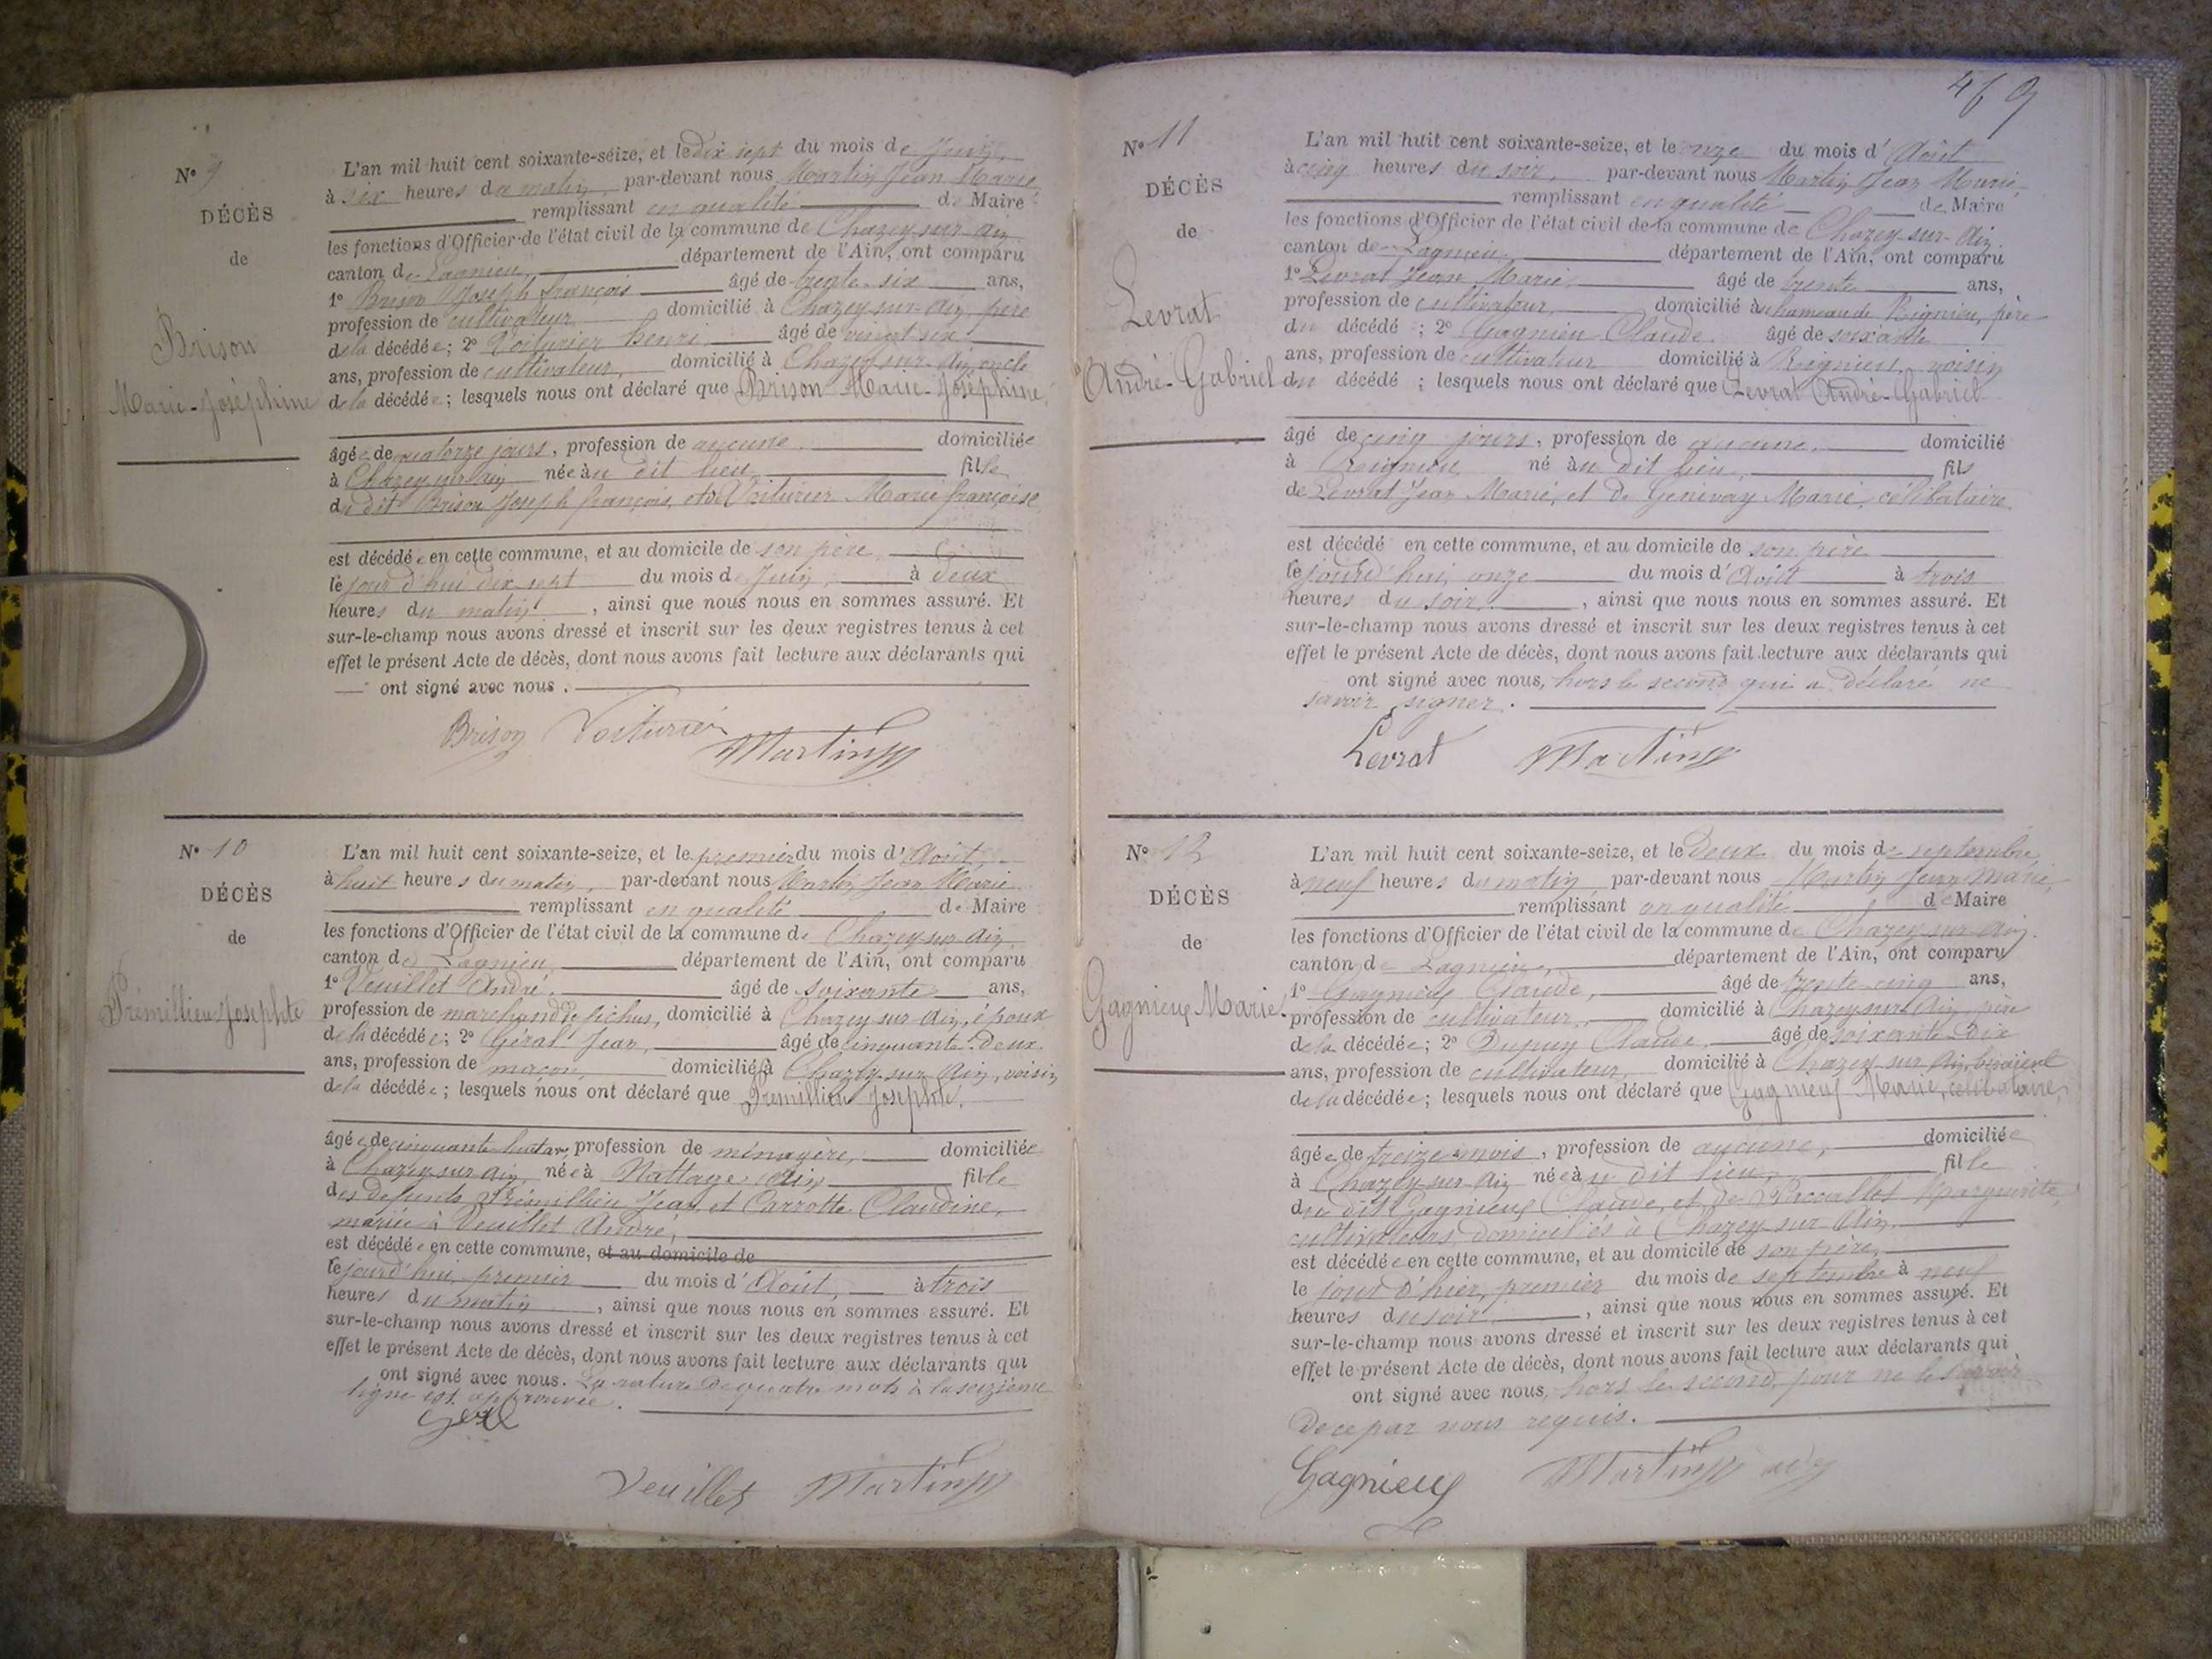 N° 9
DÉCÈS
de
Brison
Marie-Joséphine
L'an mil huit cent soixante-seize, et le dix sept du mois de Juin,
à six heures du matin, par-devant nous Martin Jean Marie,
remplissant en qualité de Maire
les fonctions d'Officier de l'état civil de la commune de Chazey-sur-Ain
canton de Lagnieu, département de l'Ain, ont comparu
1° Brison Joseph françois âgé de trente-six ans,
profession de cultivateur domicilié à Chazey-sur-Ain, père
de la décédée; 2° Voiturier henri âgé de vingt six
ans, profession de cultivateur, domicilié à Chazey-sur-Ain, oncle
de la décédée; lesquels nous ont déclaré que Brison Marie-Joséphine,
âgée de quatorze jours, profession de aucune domiciliée
à Chazey sur Ain née au dit lieu, fille
du dit Brison Joseph françois, et de Voiturier Marie françoise
est décédée en cette commune, et au domicile de son père
le jourd'hui dix sept du mois de Juin, à deux
heures du matin, ainsi que nous nous en sommes assuré. Et
sur-le-champ nous avons dressé et inscrit sur les deux registres tenus à cet
effet le présent Acte de décès, dont nous avons fait lecture aux déclarants qui
ont signé avec nous.
Brison Voiturier Martin
N° 10
DÉCÈS
de
Prémillieu Josephte
L'an mil huit cent soixante-seize, et le premier du mois d'Août,
à huit heures du matin, par-devant nous Martin Jean Marie
remplissant en qualité de Maire
les fonctions d'Officier de l'état civil de la commune de Chazey-sur-Ain
canton de Lagnieu département de l'Ain, ont comparu
1° Veuillet André, âgé de soixante ans,
profession de marchand de fichus, domicilié à Chazey-sur-Ain, époux
de la décédée; 2° Géral Jean, âgé de cinquante-deux
ans, profession de maçon, domicilié à Chazey-sur-Ain, voisin
de la décédée; lesquels nous ont déclaré que Prémillieu Josephte,
âgée de cinquante huit ans, profession de ménagère, domiciliée
à Chazey sur Ain, née à Nattages Ain fille
des défunts Prémillieu Jean et Carrotte Claudine,
mariée à Veuillet André,
est décédée en cette commune, et au domicile de
le jourd'hui premier du mois d'Août, à trois
heures du matin, ainsi que nous nous en sommes assuré. Et
sur-le-champ nous avons dressé et inscrit sur les deux registres tenus à cet
effet le présent Acte de décès, dont nous avons fait lecture aux déclarants qui
ont signé avec nous. La rature de quatre mots à la seizième
ligne est approuvée.
Veuillet Martin
469
N° 11
DÉCÈS
de
Levrat
André-Gabriel
L'an mil huit cent soixante-seize, et le onze du mois d'Août
à cinq heures du soir, par-devant nous Martin Jean Marie
remplissant en qualité de Maire
les fonctions d'Officier de l'état civil de la commune de Chazey-sur-Ain
canton de Lagnieu, département de l'Ain, ont comparu
1° Levrat Jean Marie âgé de trente ans,
profession de cultivateur, domicilié au hameau de Rignieu, père
du décédé; 2° Gagnieu Claude âgé de soixante
ans, profession de cultivateur domicilié à Rignieu, voisin
du décédé; lesquels nous ont déclaré que Levrat André-Gabriel
âgé de cinq jours, profession de aucune, domicilié
à Rignieu né au dit lieu, fils
de Levrat Jean Marie, et de Genevay Marie, célibataire
est décédé en cette commune, et au domicile de son père
le jourd'hui onze du mois d'Août à trois
heures du soir, ainsi que nous nous en sommes assuré. Et
sur-le-champ nous avons dressé et inscrit sur les deux registres tenus à cet
effet le présent Acte de décès, dont nous avons fait lecture aux déclarants qui
ont signé avec nous, hors le second qui a déclaré ne
savoir signer.
Levrat Martin
N° 12
DÉCÈS
de
Gagnieux Marie
L'an mil huit cent soixante-seize, et le deux du mois de septembre,
à neuf heures du matin par-devant nous Martin Jean Marie,
remplissant en qualité de Maire
les fonctions d'Officier de l'état civil de la commune de Chazey-sur-Ain.
canton de Lagnieu, département de l'Ain, ont comparu
1° Gagnieux Claude, âgé de trente-cinq ans,
profession de cultivateur, domicilié à Chazey sur Ain, père
de la décédée; 2° Dupuy Claude, âgé de soixante-dix
ans, profession de cultivateur, domicilié à Chazey-sur-Ain, bisaïeul
de la décédée; lesquels nous ont déclaré que Gagnieux Marie, célibataire,
âgée de treize mois, profession de aucune, domiciliée
à Chazey-sur-Ain née au dit lieu, fille
du dit Gagnieux Claude, et de Marguerite,
cultivateurs domiciliés à Chazey-sur-Ain,
est décédée en cette commune, et au domicile de son père,
le jour d'hier, premier du mois de septembre à neuf
heures du soir, ainsi que nous nous en sommes assuré. Et
sur-le-champ nous avons dressé et inscrit sur les deux registres tenus à cet
effet le présent Acte de décès, dont nous avons fait lecture aux déclarants qui
ont signé avec nous, hors le second pour ne le savoir
de ce par nous requis.
Gagnieux Martin